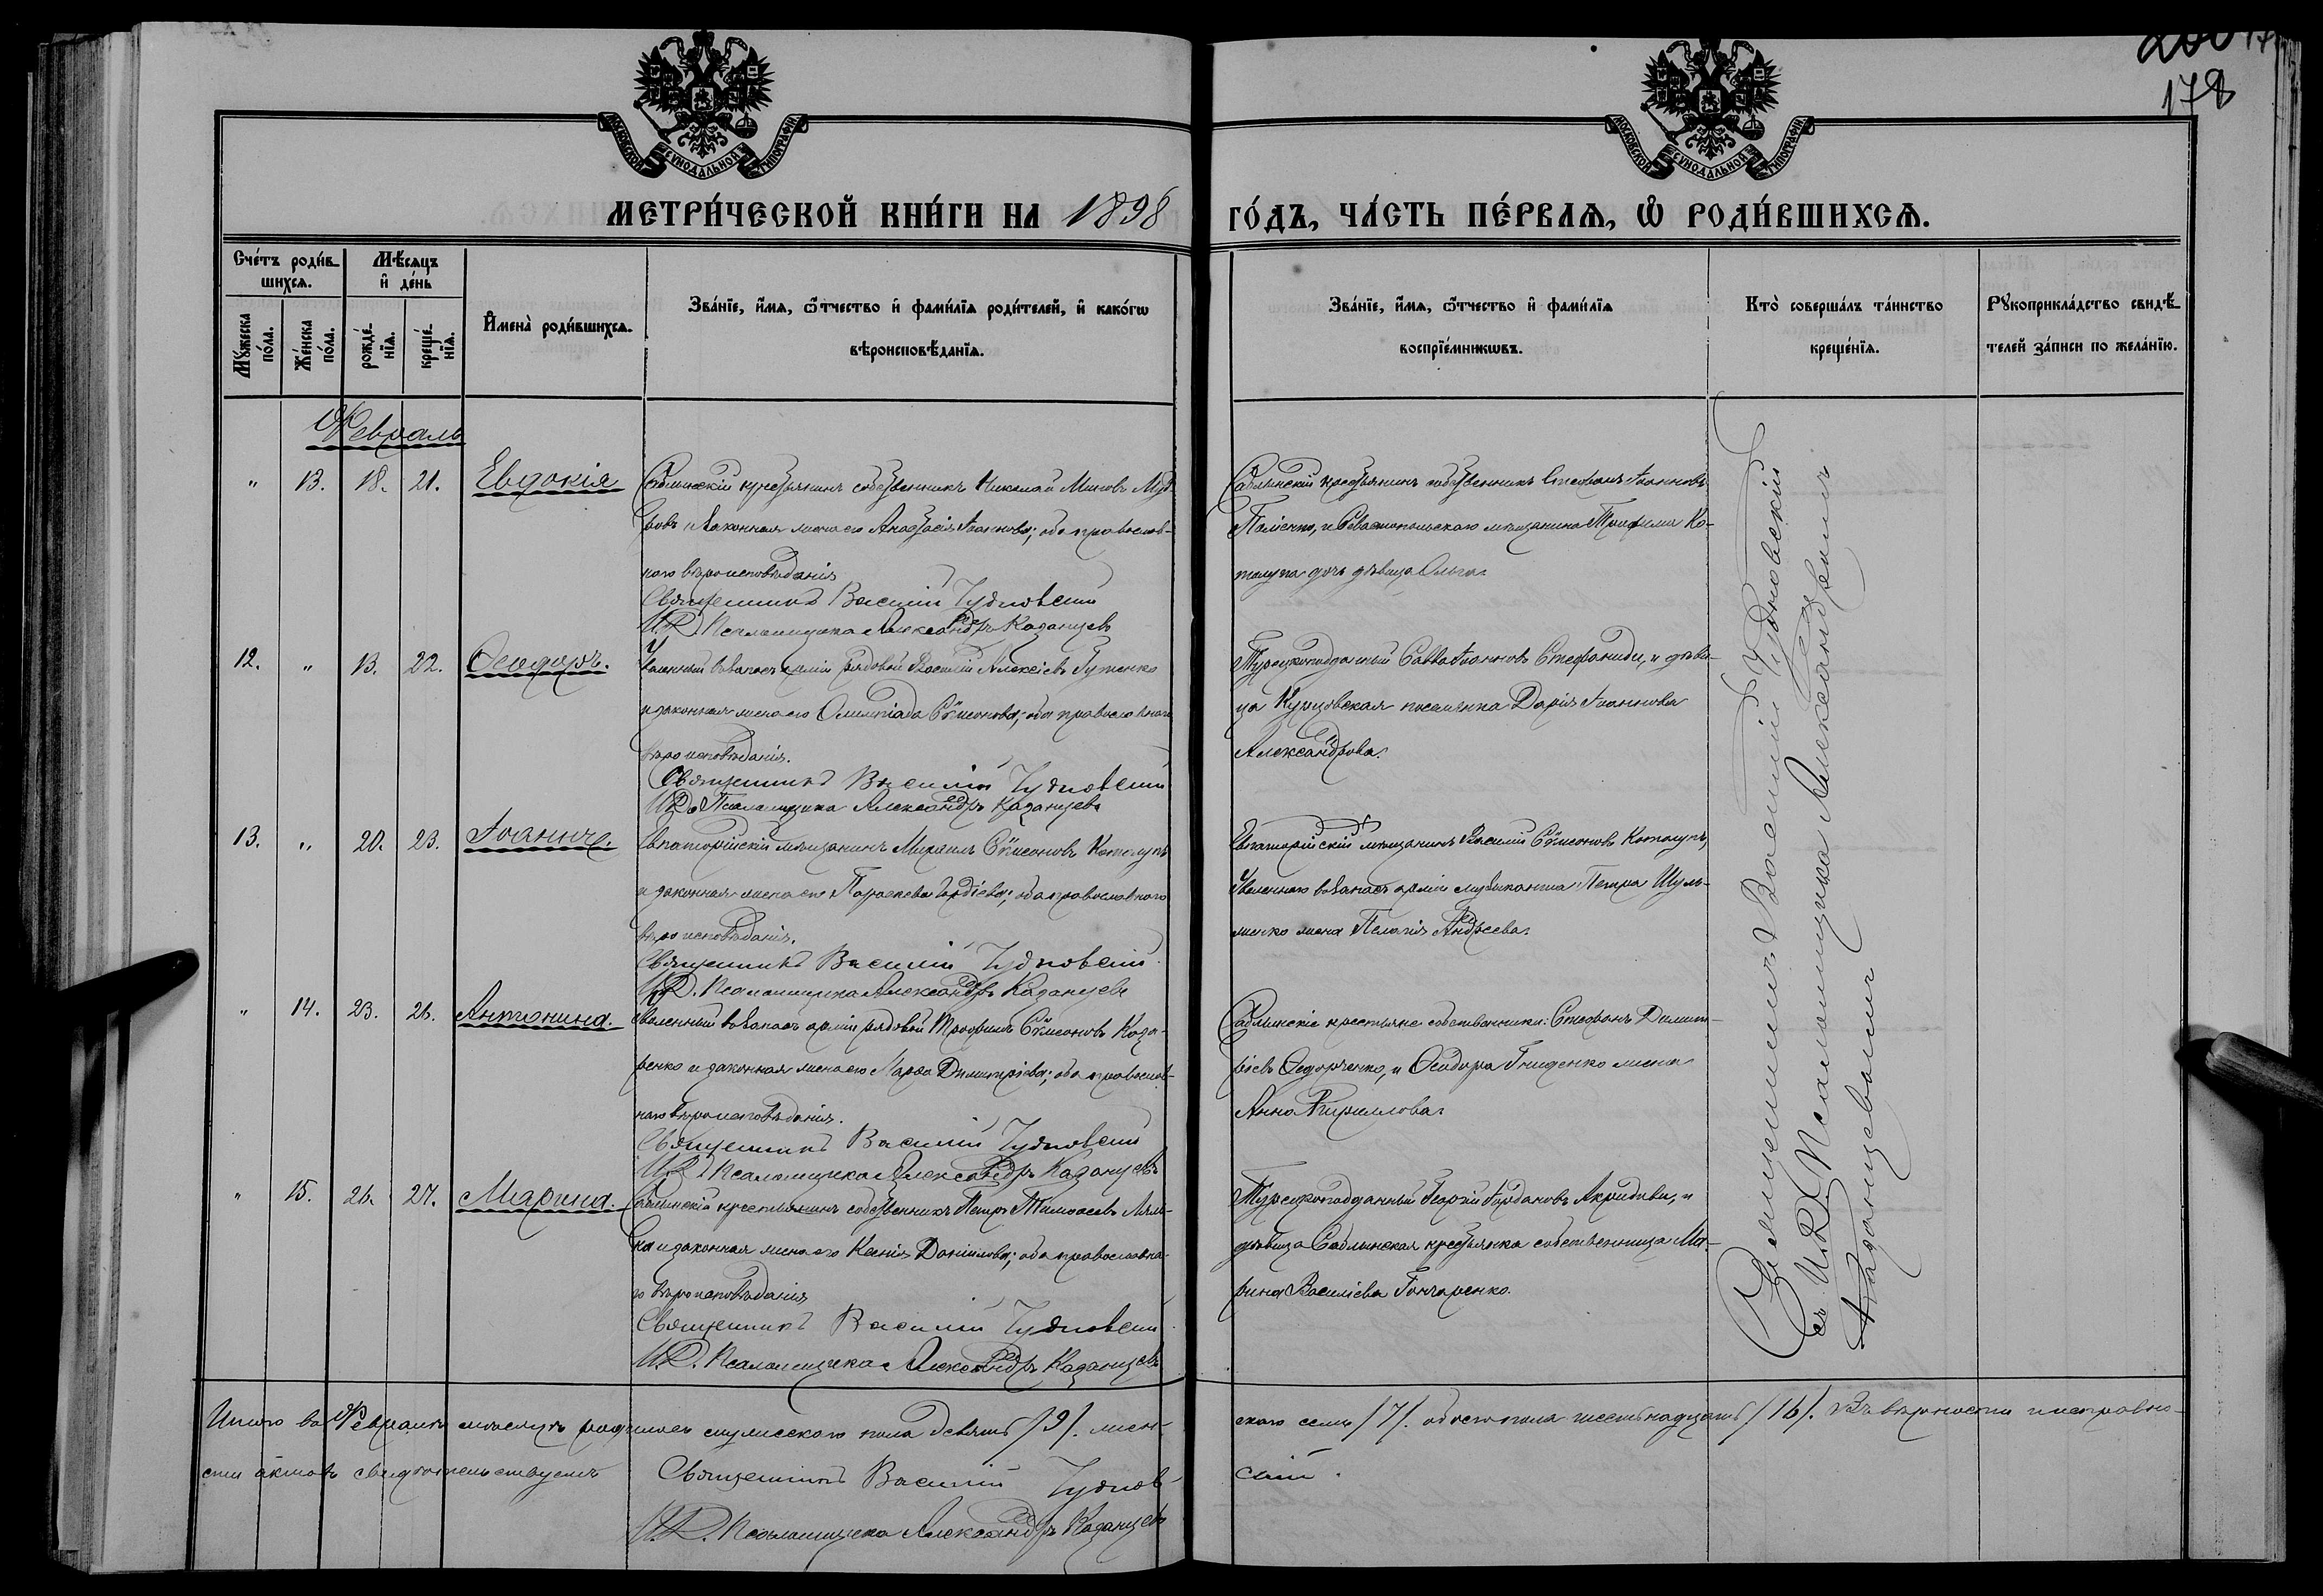 178
МОСКОВСКОЙ СУНОДАЛЬНОЙ ТИПОГРАФІИ
МОСКОВСКОЙ СУНОДАЛЬНОЙ ТИПОГРАФІИ
МЕТРИ́ЧЕСКОЙ КНИ́ГИ НА 1898 ГО́ДЪ, ЧА́СТЬ ПЕ́РВАЯ, Ѡ҆ РОДИ́ВШИХСЯ.
Сче́тъ роди́в-
шихся.
Мѣ́сяцъ
и҆ де́нь
Мꙋ́жеска
по́ла.
Же́нска
по́ла.
рожде́-
нїѧ.
креще́-
нїѧ.
И҆мена̀ роди́вшихся.
Зва́нїе, и҆́мѧ, ѻ҆́тчество и҆ фами́лїѧ роди́телей, и҆ како́гѡ
вѣроисповѣ́данїѧ.
Зва́нїе, и҆́мѧ, ѻ҆́тчество и҆ фами́лїѧ
воспрїе́мникѡвъ.
Кто̀ соверша́лъ та́инство
креще́нїѧ.
Рꙋкоприкла́дство свидѣ́-
телей за́писи по жела́нїю.
Февраль
" 13. 18. 21. Евдокія Саблынскій крестьянинъ собственникъ Николай Миновъ
и законная жена его Анастасія Іоаннова; оба православ-
наго вѣроисповѣданія
Священникъ Василій Чудновскій
И. Д. Псаломщика Александръ Казанцевъ
Саблынскій крестьянинъ собственникъ Стефанъ Іоанновъ
и Севастопольскаго мѣщанина Трофима Ко-
толупа дочь дѣвица Ольга.
12. " 13. 22. Ѳеодоръ. Уволенный въ запасъ арміи рядовой Василій Алексіевъ Гуженко
и законная жена его Олимпіада Сѵмеонова; оба православнаго
вѣроисповѣданія.
Священникъ Василій Чудновскій
И. Д. Псаломщика Александръ Казанцевъ
Турецкоподданный Савва Іоанновъ Стефаниди, и дѣви-
ца Курцовская поселянка Дарія Іоаннова
Александрова.
13. " 20. 23. Іоаннъ. Евпаторійскій мѣщанинъ Михаилъ Сѵмеоновъ Котолупъ
и законная жена его Параскева Гордіева; оба православнаго
вѣроисповѣданія.
Священникъ Василій Чудновскій
И. Д. Псаломщика Александръ Казанцевъ
Евпаторійскій мѣщанинъ Василій Сѵмеоновъ Котолупъ,
и уволеннаго въ запасъ арміи музыканта Петра Шуль-
женко жена Пелагія Андреева.
" 14. 23. 26. Антонина. Уволенный въ запасъ арміи рядовой Трофимъ Сѵмеоновъ Каза-
ренко и законная жена его Марѳа Димитріева; оба православ-
наго вѣроисповѣданія.
Священникъ Василій Чудновскій
И. Д. Псаломщика Александръ Казанцевъ
Саблынскіе крестьяне собственники: Стефанъ Димит-
ріевъ Ѳедорченко, и Ѳеодора Гниденко жена
Анна Кириллова.
" 15. 26. 27. Марина. Саблынскій крестьянинъ собственникъ Петръ Тимоѳеевъ Ляль-
ка и законная жена его Ксенія Даніилова; оба православна-
го вѣроисповѣданія
Священникъ Василій Чудновскій
И. Д. Псаломщика Александръ Казанцевъ
Турецкоподданный Георгій Іорданов Акридиви, и
дѣвица Саблынская крестьянка собственница Ма-
рина Василіева Гончаренко.
Священникъ Василій Чудновскій
съ И. Д. Псаломщика Александромъ
Казанцевымъ
Итого въ Февралѣ мѣсяцѣ родилось мужескаго пола девять /9/. жен-
скаго семь /7/. обоего пола шестнадцать /16/. Въ вѣрности и исправно-
сти актовъ свидѣтельствуемъ Священникъ Василій Чуднов-
скій.
И. Д. Псаломщика Александръ Казанцевъ